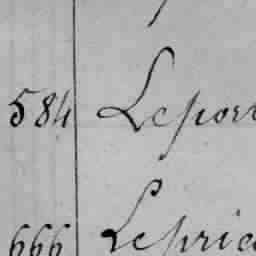 584 Lepor
666 Lepric